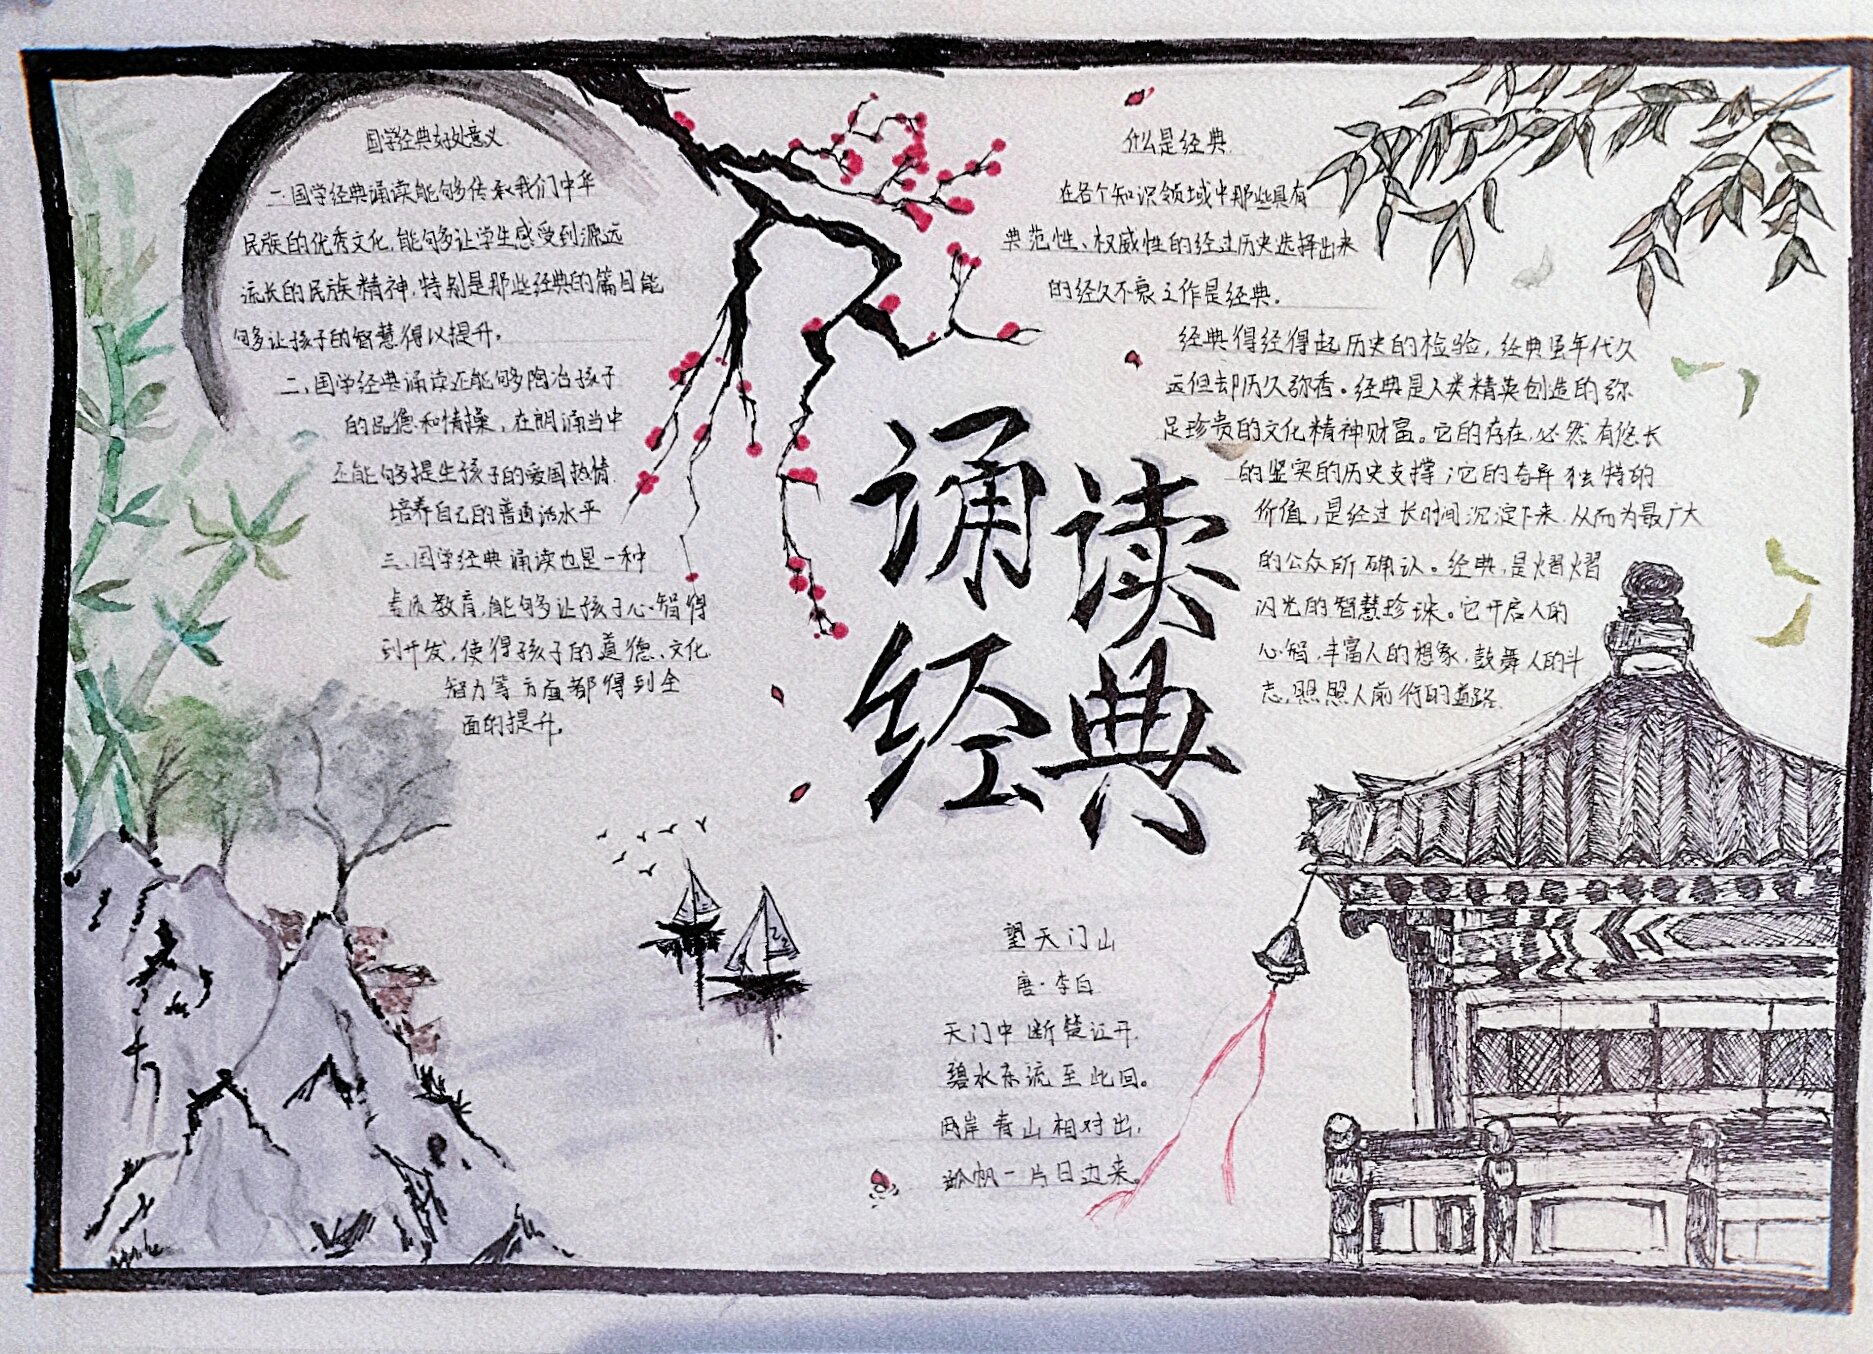 国学经典好处意义
二.国学经典诵读能够传承我们中华
民族的优秀文化,能够让学生感受到源远
流长的民族精神,特别是那些经典的篇目能
够多让孩子的智慧得以提升。
二、国学经典诵读还能够陶冶孩子
的品德和情操，在朗诵当中
还能够提生孩子的爱国热情.
培养自己的普通话水平
三.国学经典诵读也是一种
素质教育,能够让孩子心智得
到开发,使得孩子的道德、文化
智力等方面都得到全
面的提升。
诵读
经典
什么是经典
在各个知识领域中那些具有
典范性、权威性的经过历史选择出来
的经久不衰之作是经典。
经典得经得起历史的检验,经典虽年代久
远但却历久弥香。经典是人类精英创造的弥
足珍贵的文化精神财富。它的存在,必然有悠长
的坚实的历史支撑;它的奇异独特的
价值,是经过长时间沉淀下来,从而为最广大
的公众所确认。经典,是熠熠
闪光的智慧珍珠。它开启人的
心智,丰富人的想象,鼓舞人的斗
志,照照人前行的道路.
望天门山
唐·李白
天门中断楚江开,
碧水东流至此回。
两岸青山相对出,
孤帆一片日边来。